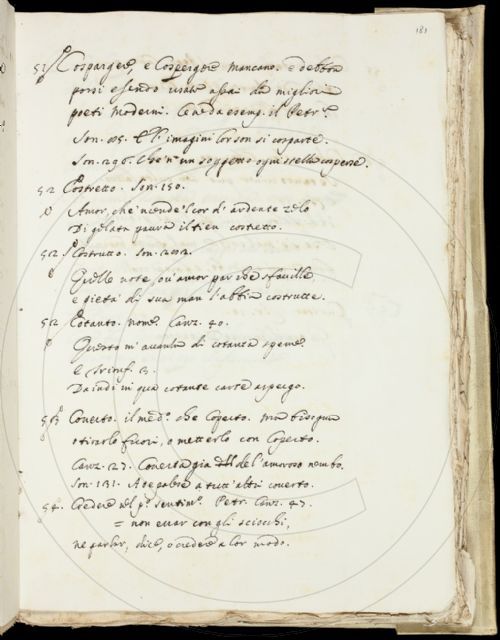 181
51 Cospargere, e Cospergere mancano. e debbon
porsi essendo usate assai da migliori
poeti moderni. Ce ne da esemp. il Petr.
Son. E l'imagini lor son si cosparte.
Son. 296. Che 'n un soggetto ogni stella cosperse.
52 Costretto. Son. 150.
Amor, che 'ncende 'l cor d'ardente zelo
Di gelata paura il tien costretto.
52 Costrutto. Son.
Quelle note ov'amor par che sfaville,
e pietà di sua man l'abbia costrutte.
52 Cotanto. nome. Canz. 40.
Questo m'avanza di cotanta speme
e Trionf.
Da indi in qua cotante carte aspergo.
53 Coverto. il med.º che Coperto. ma bisogna
o tirarlo fuori, o metterlo con Coperto.
Canz. 27. Coverta già del l'amoroso nembo.
Son. 131. a tutt'altri coverto.
54. Credere nel p.º sentim.º Petr. Canz. 47.
= non errar con gli sciocchi,
ne parlar, dice, o credere a lor modo.